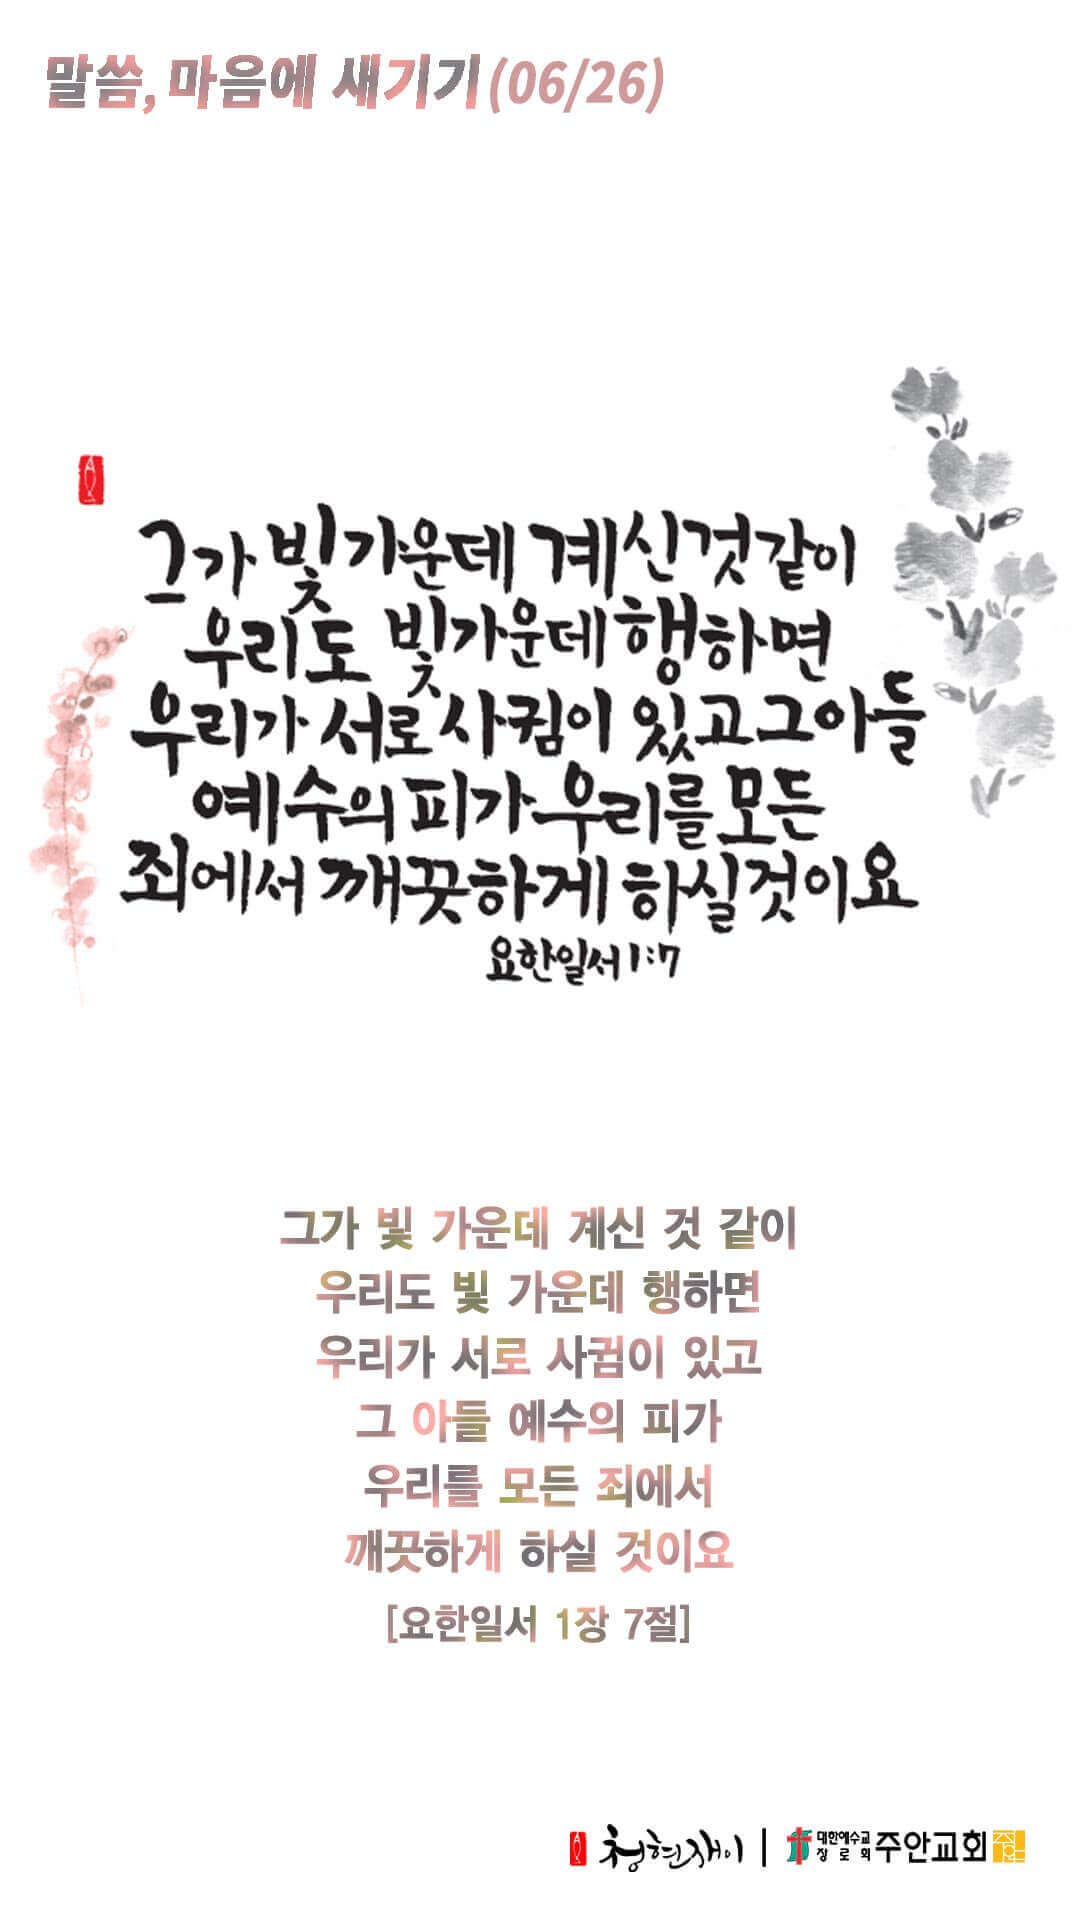 말씀, 마음에 새기기(06/26)
그가 빛 가운데 계신 것 같이
우리도 빛 가운데 행하면
우리가 서로 사귐이 있고 그 아들
예수의 피가 우리를 모든
죄에서 깨끗하게 하실 것이요
요한일서 1:7
그가 빛 가운데 계신 것 같이
우리도 빛 가운데 행하면
우리가 서로 사귐이 있고
그 아들 예수의 피가
우리를 모든 죄에서
깨끗하게 하실 것이요
[요한일서 1장 7절]
청현재이 | 대한예수교 장로회 주안교회